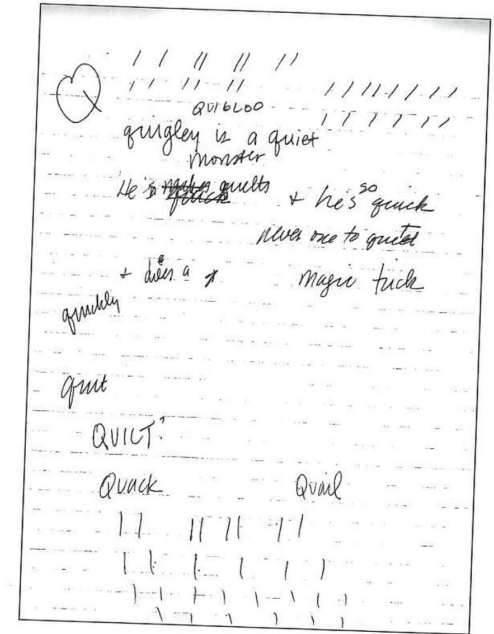 QUIGLOO
quigley is a quiet
monster
He is makes quilts
quick
+ he's so quick
never one to quit
+ does a magic trick
quickly
quit
QUILT?
Quack Quail